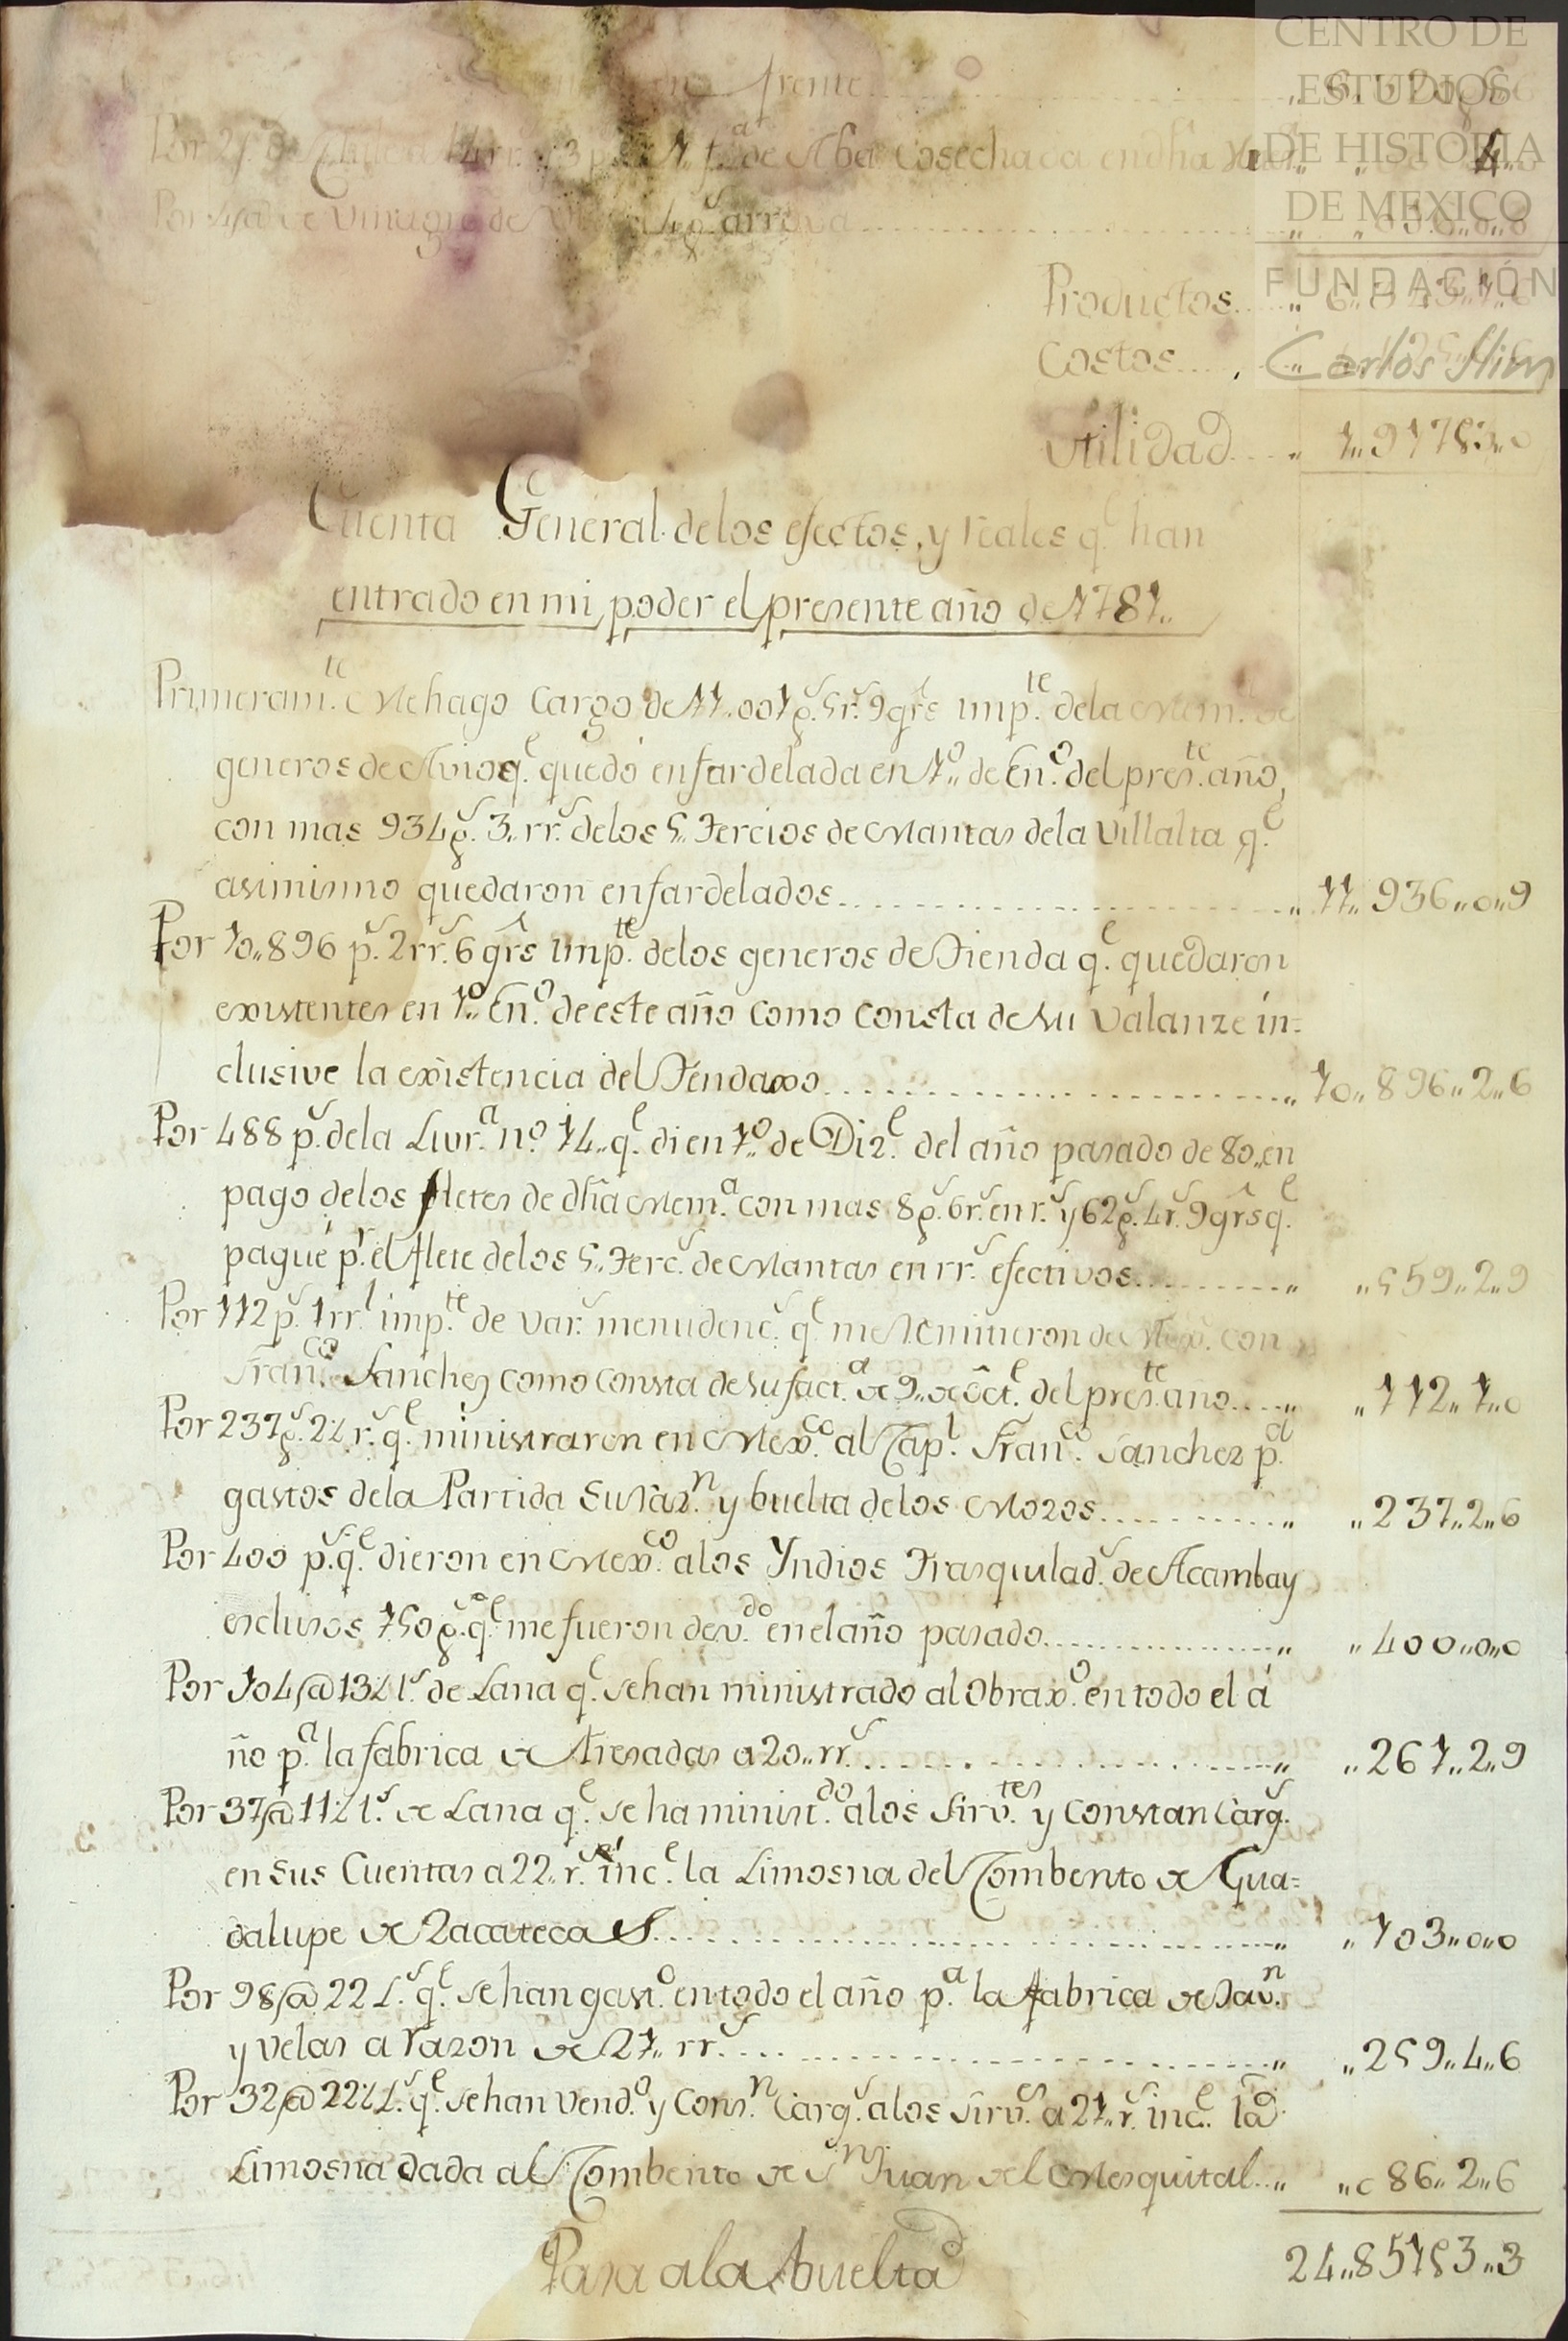 CENTRO DE
ESTUDIOS
DE HISTORIA
DE MEXICO
FUNDACIÓN
Carlos Slim
frente
Por de Chile a 14 rr. y 3 p. de Alba Cosechada en dha
Por 4@ de Vinagre de arrova
Productos
Costos
Utilidad
Cuenta General de los efectos, y reales q.e han
entrado en mi poder el presente año de 1781.,
Primeram.te Me hago Cargo de 11.001 p.s 5 r.s 9 gr̂s imp.te de la Mem.a de
generos de Avios q.e quedó enfardelada en 1.o de En.o del pres.te año,
con mas 934 p.s 3,, rr.s de los 5,, Tercios de Mantas de la Villalta q.e
asimismo quedaron enfardelados ,, 11,, 936,, 0,, 9
Por 10,, 896 p.s 2 rr.s 6 gr̂s imp.te de los generos de Tienda q.e quedaron
existentes en 1.o En.o de este año como consta de su Valanze in=
clusive la existencia del Tendaxo ,, 10,, 896,, 2,, 6
Por 488 p.s de la Livr.a n.o 14,, q.e di en 1.o de Diz.e del año pasado de 80,, en
pago de los fletes de dĥa Mem.a con mas 8 p.s 6 r.s en r.s y 62 p.s 4 r.s 9 gr̂s q.e
pagué p.r el flete de los 5,, Terc.s de Mantas en rr.s efectivos ,, ,, 559,, 2,, 9
Por 112 p.s 1 rr.l imp.te de var.s menudenc.s q.e me remitieron de Mex.co con
Fran.co Sanchez como consta de su fact.a de 9,, de Oct.e del pres.te año ,, ,, 112,, 1,, 0
Por 237 p.s 2½ r.s q.e ministraron en Mex.co al Cap.l Fran.co Sanchez p.a
gastos de la Partida su Raz.n y buelta de los Mozos ,, ,, 237,, 2,, 6
Por 400 p.s q.e dieron en Mex.co a los Yndios Trasquilad.s de Acambay
esclusos 150 p.s q.e me fueron dev.do en el año pasado ,, ,, 400,, 0,, 0
Por 104@ 13½ l.s de Lana q.e se han ministrado al Obrax.o en todo el a
ño p.a la fabrica de fresadas a 20,, rr.s ,, ,, 261,, 2,, 9
Por 37@ 11½ l.s de Lana q.e se ha minist.do a los Sirv.tes y constan Carg.s
en sus Cuentas a 22,, r.s inc.e la Limosna del Combento de Gua=
dalupe de Zacatecas ,, ,, 103,, 0,, 0
Por 98@ 22 l.s q.e se han gast.o en todo el año p.a la fabrica de Jav.n
y velas a razon de 21,, rr.s ,, ,, 259,, 4,, 6
Por 32@ 22½ l.s q.e se han vend.o y cons.n Carg.s a los Sirv.es a 21,, r.s inc.e la
Limosna dada al Combento de S.n Juan del Mesquital ,, ,, 086,, 2,, 6
Pasa a la buelta 24,, 851 p.s 3,, 3